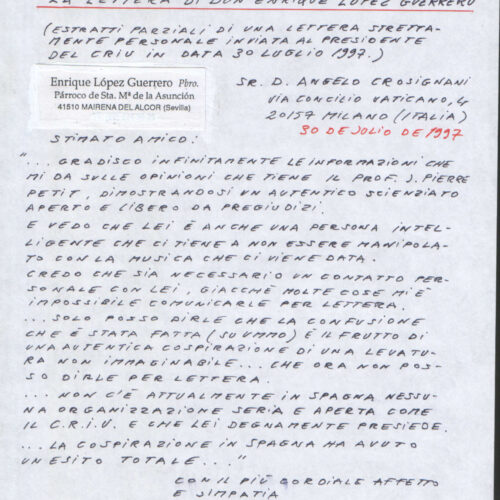 LA LETTERA DI DON ENRIQUE LOPEZ GUERRERO
(ESTRATTI PARZIALI DI UNA LETTERA STRETTA-
MENTE PERSONALE INVIATA AL PRESIDENTE
DEL CRIU IN DATA 30 LUGLIO 1997.)
Enrique López Guerrero Pbro.
Párroco de Sta. Mª de la Asunción
41510 MAIRENA DEL ALCOR (Sevilla)
SR. D. ANGELO CROSIGNANI
VIA CONCILIO VATICANO, 4
20157 MILANO (ITALIA)
30 DE JULIO DE 1997
STIMATO AMICO:
"... GRADISCO INFINITAMENTE LE INFORMAZIONI CHE
MI DA SULLE OPINIONI CHE TIENE IL PROF. J. PIERRE
PETIT, DIMOSTRANDOSI UN AUTENTICO SCIENZIATO
APERTO E LIBERO DA PREGIUDIZI.
E VEDO CHE LEI È ANCHE UNA PERSONA INTEL-
LIGENTE CHE CI TIENE A NON ESSERE MANIPOLA-
TO CON LA MUSICA CHE CI VIENE DATA.
CREDO CHE SIA NECESSARIO UN CONTATTO PER-
SONALE CON LEI, GIACCHÈ MOLTE COSE MI È
IMPOSSIBILE COMUNICARLE PER LETTERA.
... SOLO POSSO DIRLE CHE LA CONFUSIONE
CHE È STATA FATTA (SU UMMO) È IL FRUTTO DI
UNA AUTENTICA COSPIRAZIONE DI UNA LEVATU-
RA NON IMMAGINABILE... CHE ORA NON POS-
SO DIRLE PER LETTERA.
... NON C'È ATTUALMENTE IN SPAGNA NESSU-
NA ORGANIZZAZIONE SERIA E APERTA COME
IL C.R.I.U. E CHE LEI DEGNAMENTE PRESIEDE.
... LA COSPIRAZIONE IN SPAGNA HA AVUTO
UN ESITO TOTALE..."
CON IL PIÙ CORDIALE AFFETTO
E SIMPATIA